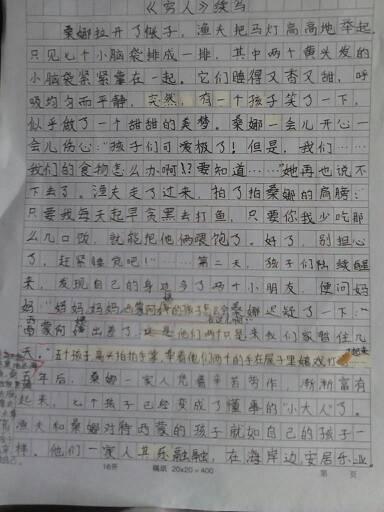 《穷人》续写
桑娜拉开了帐子，渔夫把马灯高高地举起，
只见七个小脑袋排成一排，其中两个黄头发的
小脑袋紧紧靠在一起。它们睡得又香又甜，呼
吸均匀而平静，突然，有一个孩子笑了一下，
似乎做了一个甜甜的美梦。桑娜一会儿开心一
会儿伤心："孩子们可爱极了！但是，我们……
我们的食物怎么办啊！？要知道……"她再也说不
下去了。渔夫走了过来，拍了拍桑娜的肩膀：
只要我每天起早贪黑去打鱼，只要你我少吃那
么几口饭，就能把他俩喂饱了。好了，别担心
了，赶紧睡觉吧！……第二天，孩子们陆续醒
来，发现自己的身边多了两个小朋友，便问妈
妈："妈妈妈妈西蒙阿姨的孩子 桑娜迟疑了一下："
西蒙阿姨出差了 他们两个只是来我们家暂住几
天。"五个孩子高兴拍拍手掌，牵着他们两个的手在屋子里嬉戏打 起来
年后，桑娜一家人凭着辛苦劳作，渐渐富有
起来，七个孩子已经变成了懂事的"小大人"了。
渔夫和桑娜对待西蒙的孩子就如自己的孩子一
样。他们一家人其乐融融，在海岸边安居乐业。
16开 稿纸 20x20=400 第 页